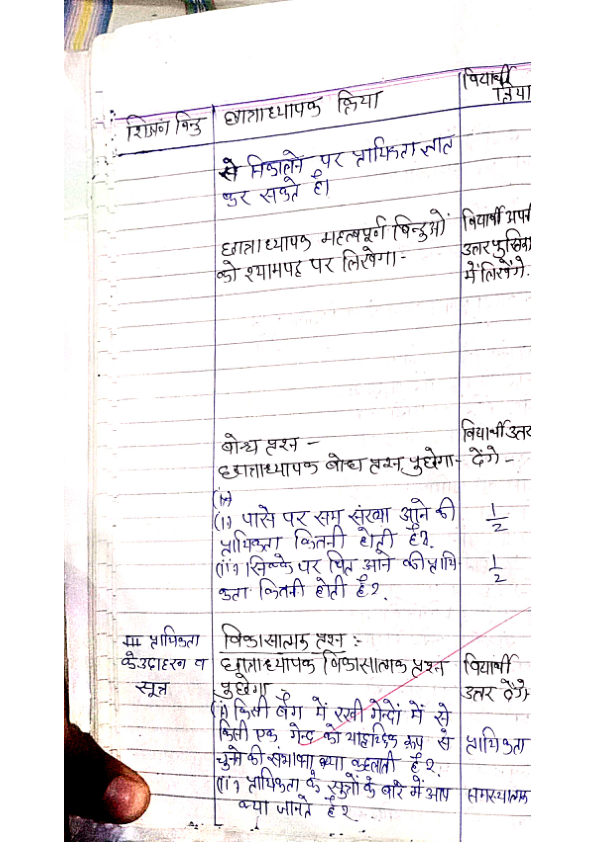 शिक्षण बिन्दु
छात्राध्यापक क्रिया
विद्यार्थी
क्रिया
से निकालने पर प्रायिकता ज्ञात
कर सकते हैं।
छात्राध्यापक महत्वपूर्ण बिन्दुओं
को श्यामपट्ट पर लिखेगा-
विद्यार्थी अपनी
उत्तर पुस्तिका
में लिखेंगे।
बोध प्रश्न -
छात्राध्यापक बोध प्रश्न पुछेगा-
विद्यार्थी उत्तर
देंगे -
(i) पासे पर सम संख्या आने की
प्रायिकता कितनी होती है?
1/2
(ii) सिक्के पर चित आने की प्रायि
कता कितनी होती है?
1/2
III प्रायिकता
के उदाहरन व
सूत्र
विकासात्मक प्रश्न :-
छात्राध्यापक विकासात्मक प्रश्न
पुछेगा
विद्यार्थी
उत्तर देंगे
(i) किसी बैग में रखी गेन्दों में से
किसी एक गेन्द को यादृच्छिक रूप से
चुनने की क्या कहलाती है?
प्रायिकता
(ii) प्रायिकता के सूत्रों के बारे में आप
क्या जानते है?
समस्यात्मक